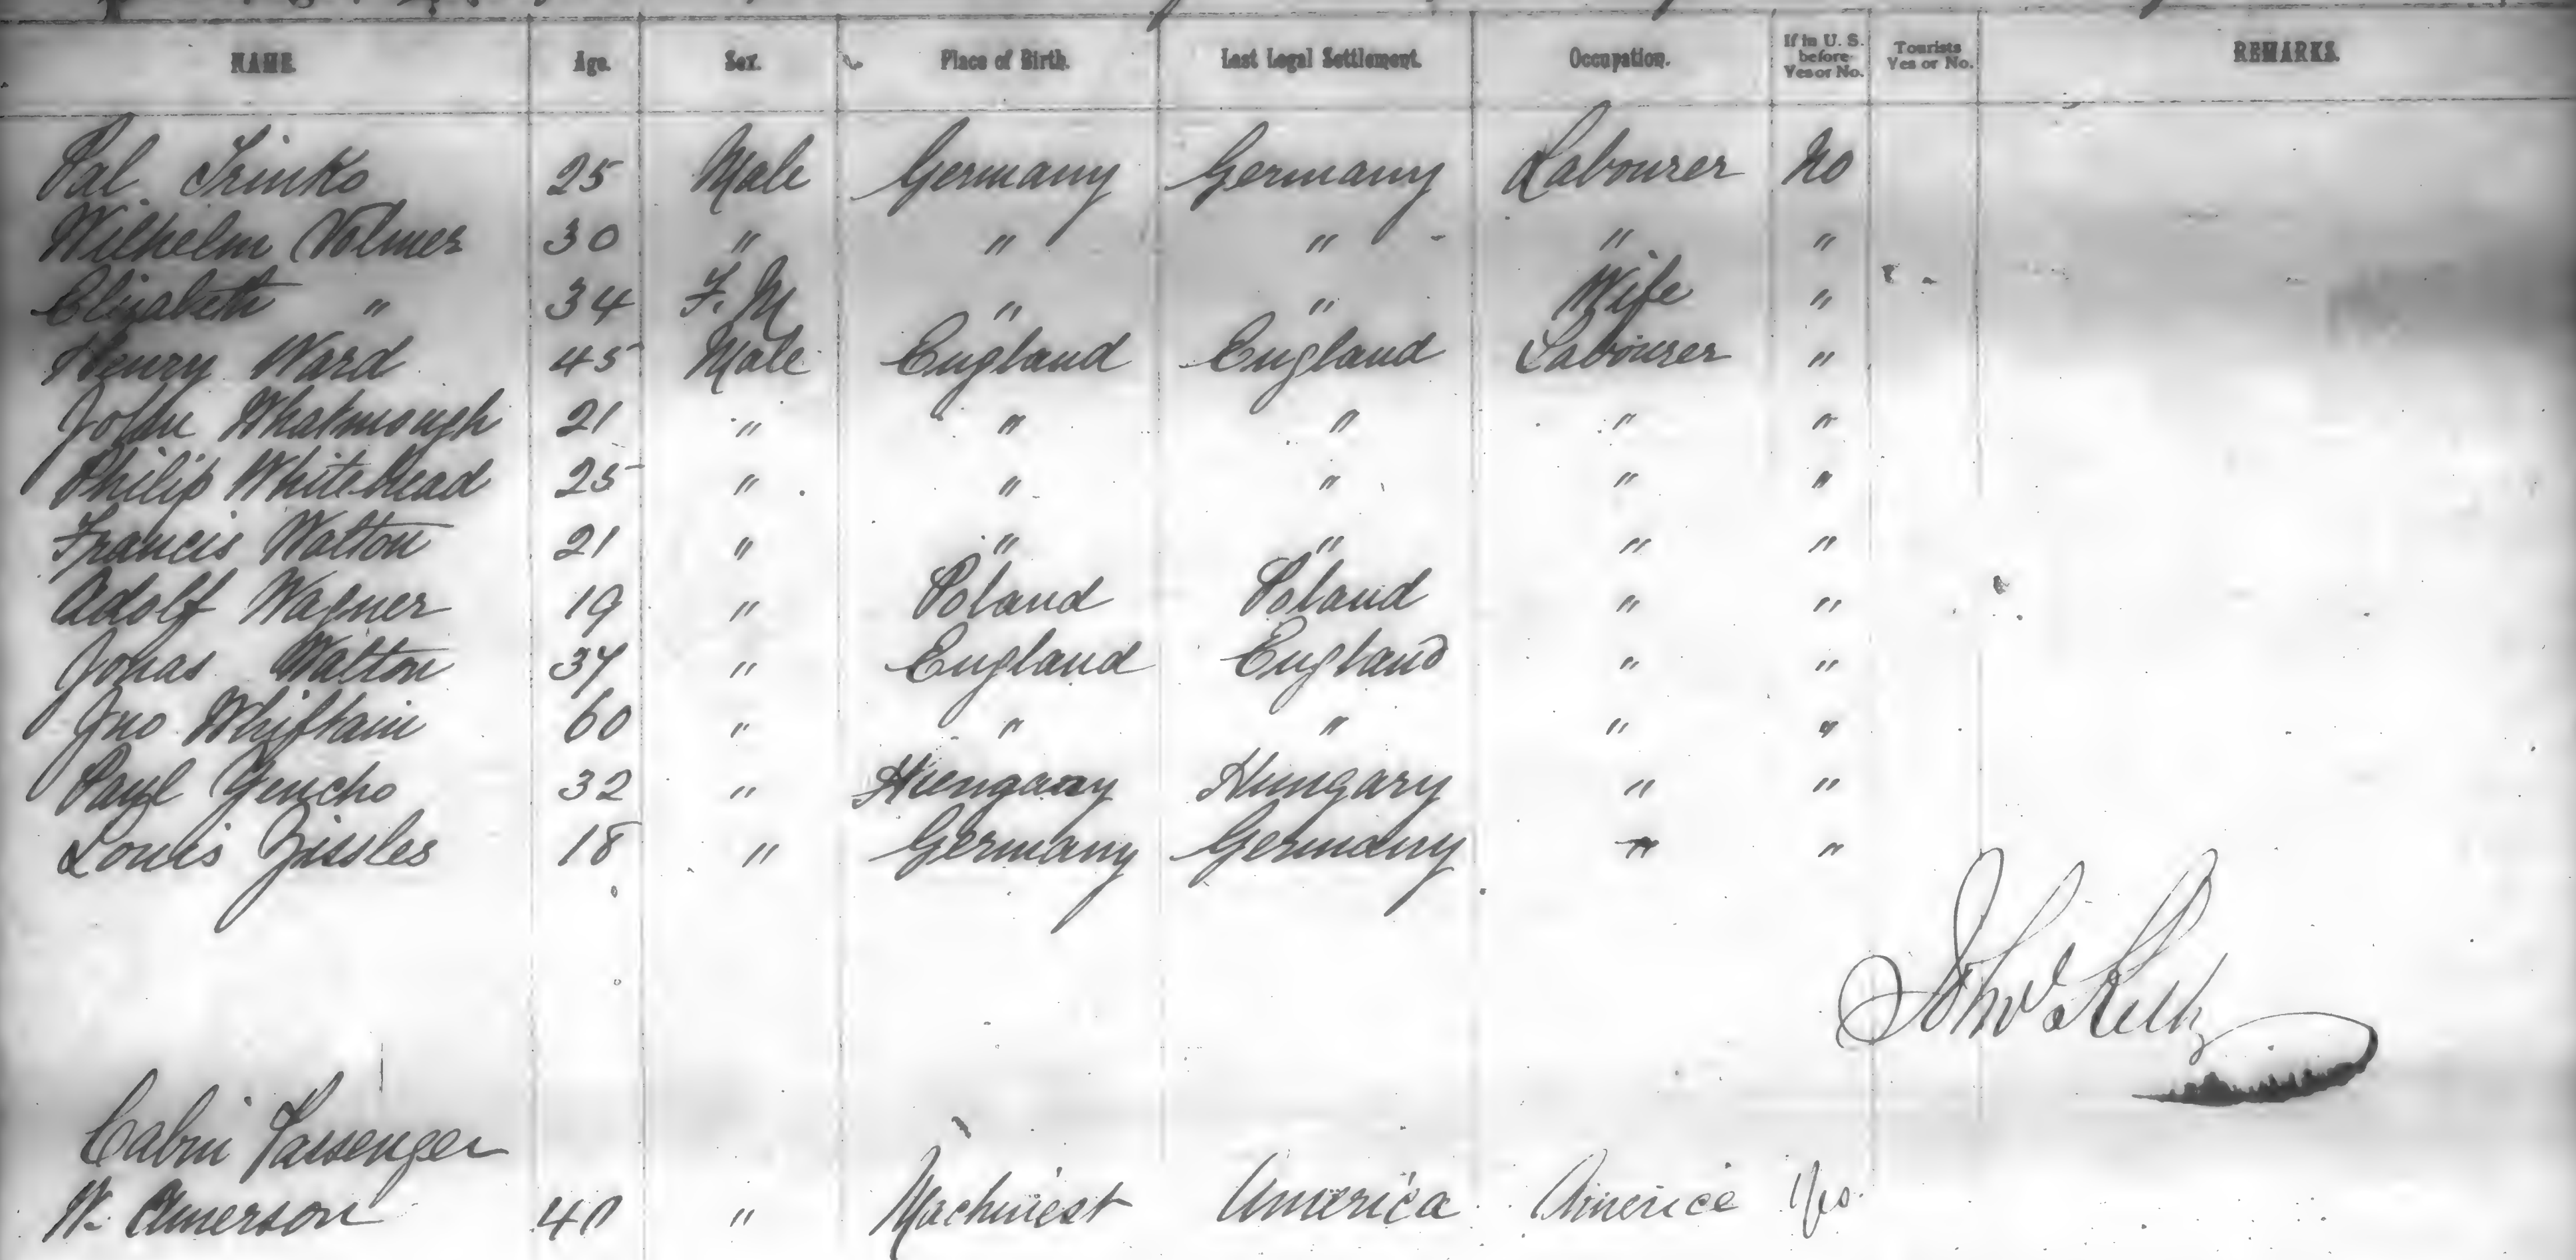 NAME. Age. Sex. Place of Birth. Last Legal Settlement. Occupation. If in U. S. before- Yes or No. Tourists Yes or No. REMARKS.
Pal Trinko 25 Male Germany Germany Labourer No
Wilhelm Volmer 30 " " " " "
Elizabeth " 34 F. M " " Wife "
Henry Ward 45 Male England England Labourer "
John Whatmough 21 " " " " "
Philip Whitehead 25 " " " " "
Francis Walton 21 " " " " "
Adolf Wagner 19 " Poland Poland " "
Jonas Walton 37 " England England " "
Jno 60 " " " " "
Paul 32 " Hungary Hungary " "
Louis Zissler 18 " Germany Germany " "
John
Cabin Passenger
W. Amerson 40 " Machinest America America Yes.